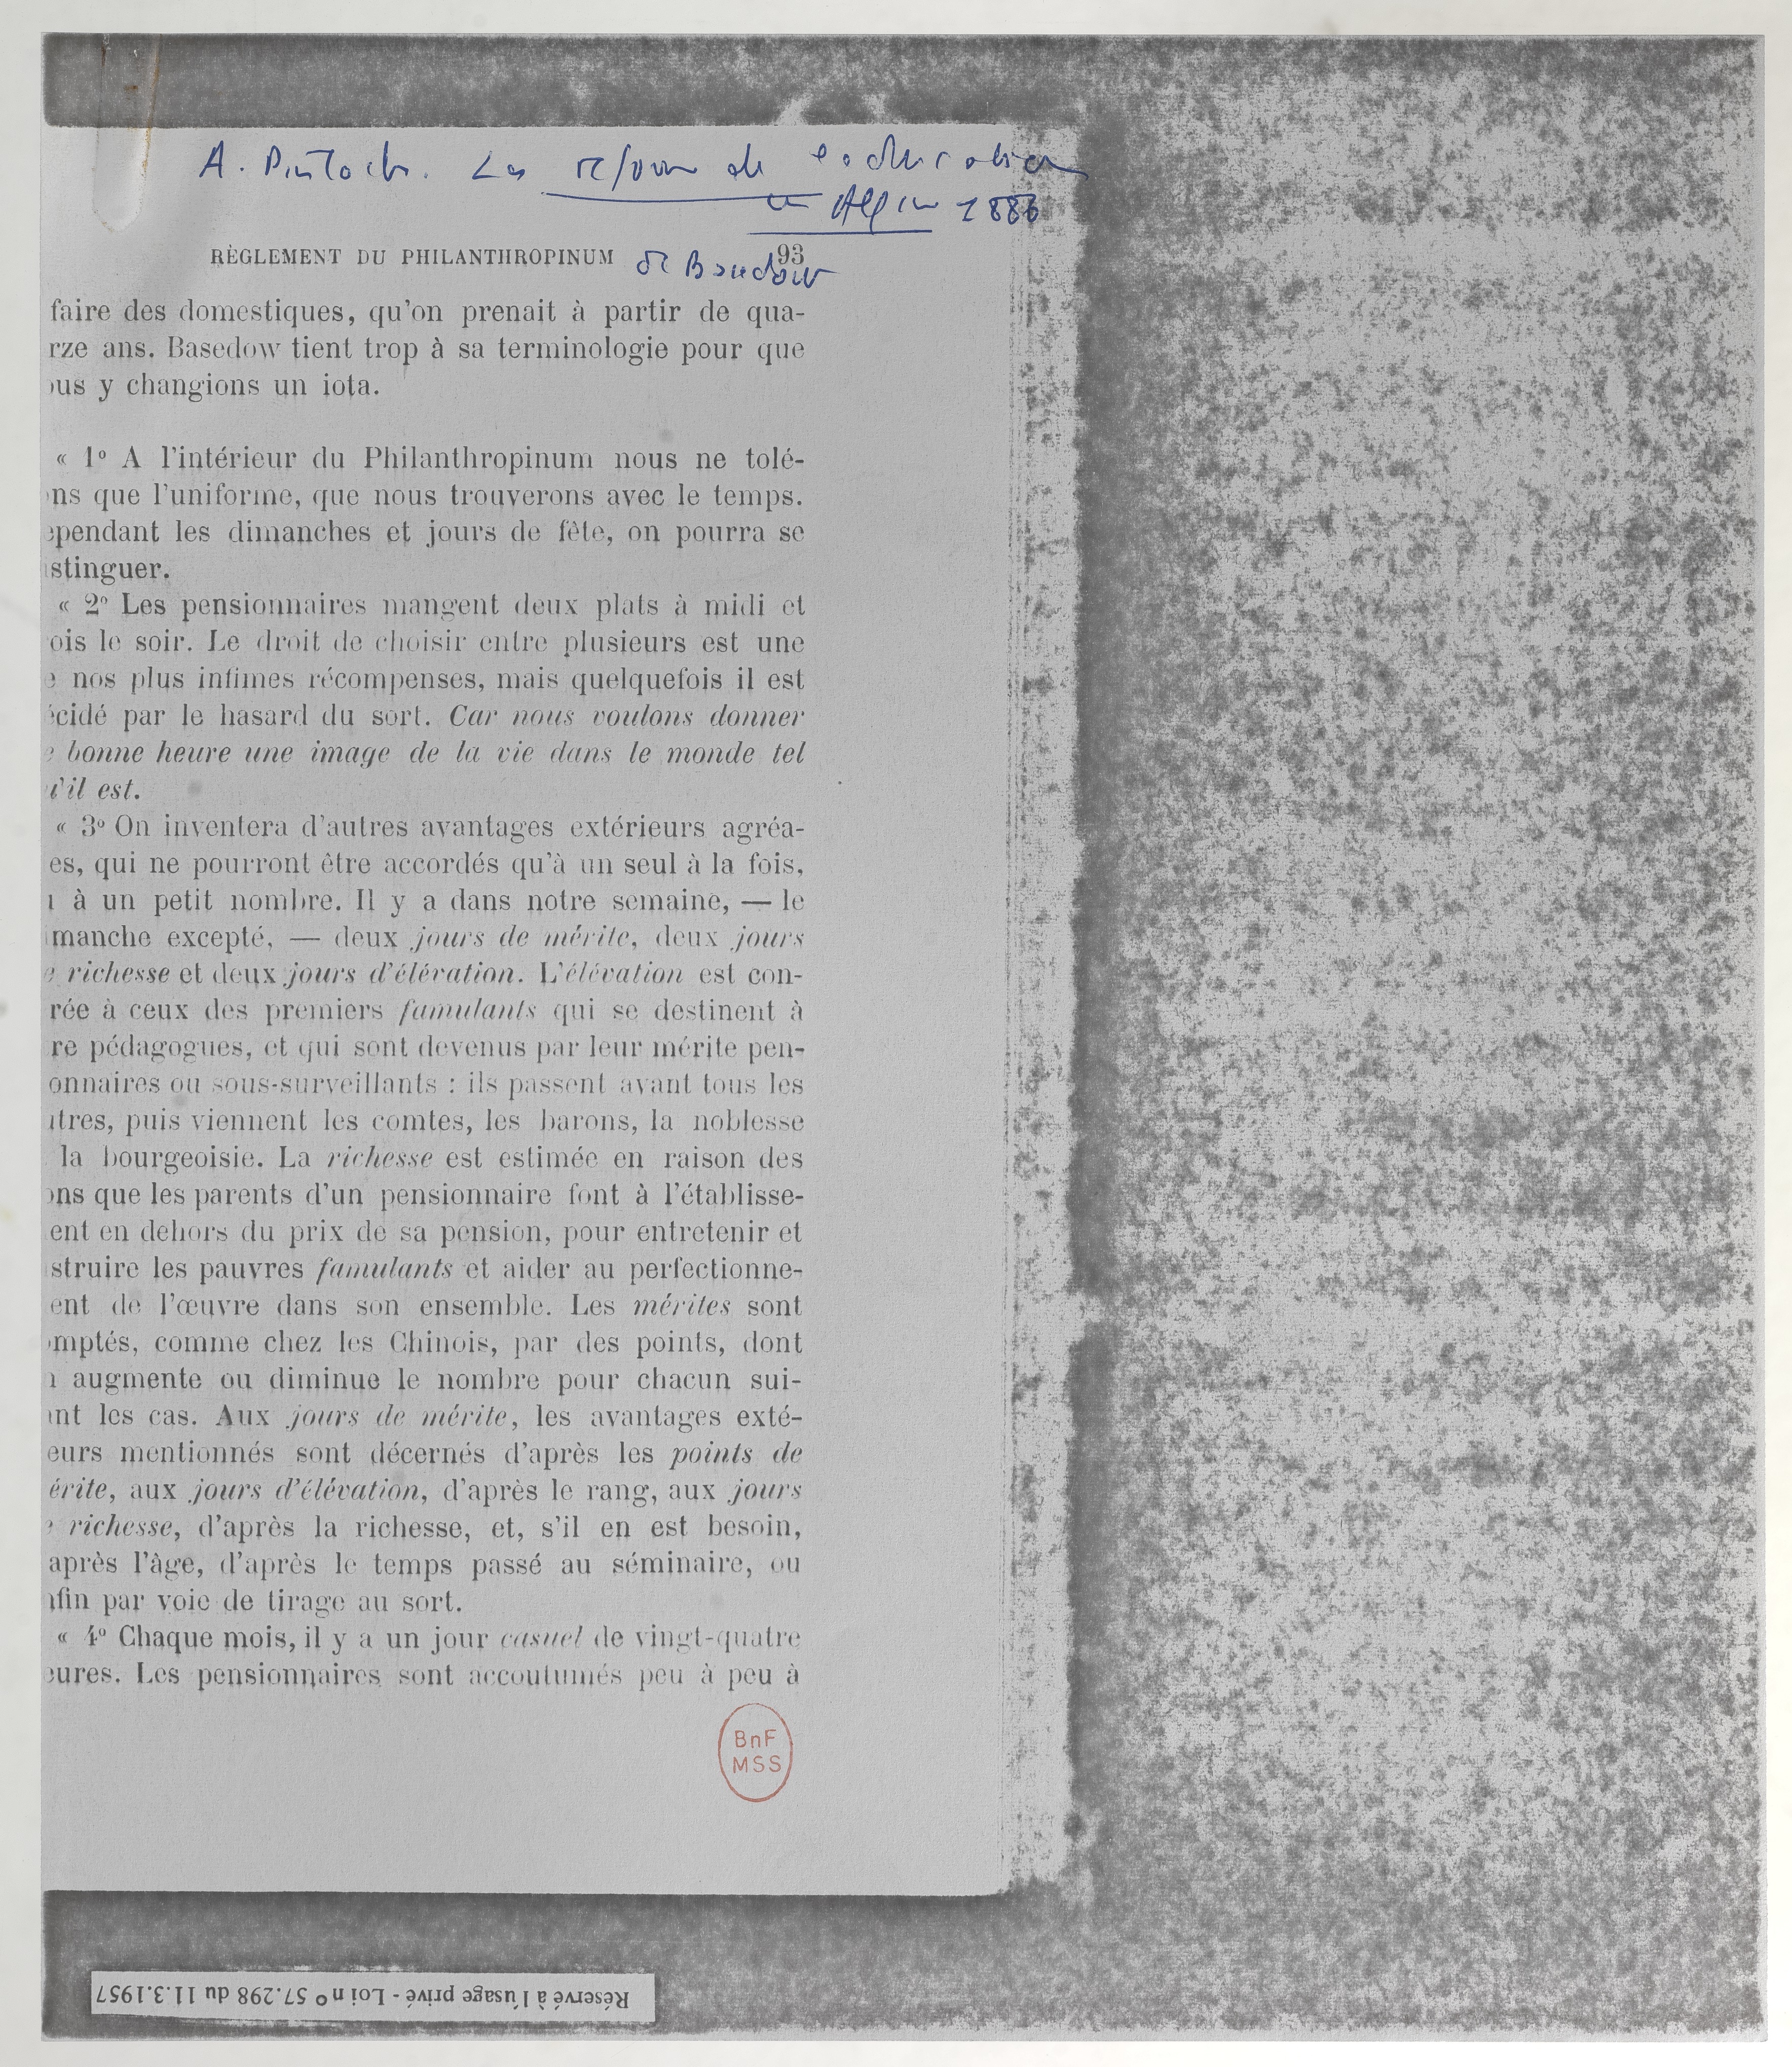 A. Pinloch. La réforme de l'éducation
en Allem 1886
RÈGLEMENT DU PHILANTHROPINUM de Basedow 93
faire des domestiques, qu'on prenait à partir de qua-
rze ans. Basedow tient trop à sa terminologie pour que
ous y changions un iota.
« 1° A l'intérieur du Philanthropinum nous ne tolé-
ns que l'uniforme, que nous trouverons avec le temps.
ependant les dimanches et jours de fête, on pourra se
stinguer.
« 2° Les pensionnaires mangent deux plats à midi et
ois le soir. Le droit de choisir entre plusieurs est une
e nos plus intimes récompenses, mais quelquefois il est
écidé par le hasard du sort. Car nous voulons donner
e bonne heure une image de la vie dans le monde tel
u'il est.
« 3° On inventera d'autres avantages extérieurs agréa-
es, qui ne pourront être accordés qu'à un seul à la fois,
u à un petit nombre. Il y a dans notre semaine, — le
imanche excepté, — deux jours de mérite, deux jours
e richesse et deux jours d'élévation. L'élévation est con-
rée à ceux des premiers famulants qui se destinent à
re pédagogues, et qui sont devenus par leur mérite pen-
onnaires ou sous-surveillants : ils passent avant tous les
utres, puis viennent les comtes, les barons, la noblesse
la bourgeoisie. La richesse est estimée en raison des
ons que les parents d'un pensionnaire font à l'établisse-
ent en dehors du prix de sa pension, pour entretenir et
struire les pauvres famulants et aider au perfectionne-
ent de l'œuvre dans son ensemble. Les mérites sont
omptés, comme chez les Chinois, par des points, dont
n augmente ou diminue le nombre pour chacun sui-
ant les cas. Aux jours de mérite, les avantages exté-
eurs mentionnés sont décernés d'après les points de
érite, aux jours d'élévation, d'après le rang, aux jours
e richesse, d'après la richesse, et, s'il en est besoin,
après l'âge, d'après le temps passé au séminaire, ou
nfin par voie de tirage au sort.
« 4° Chaque mois, il y a un jour casuel de vingt-quatre
eures. Les pensionnaires sont accoutumés peu à peu à
BnF
MSS
Réservé à l'usage privé - Loi n° 57.298 du 11.3.1957